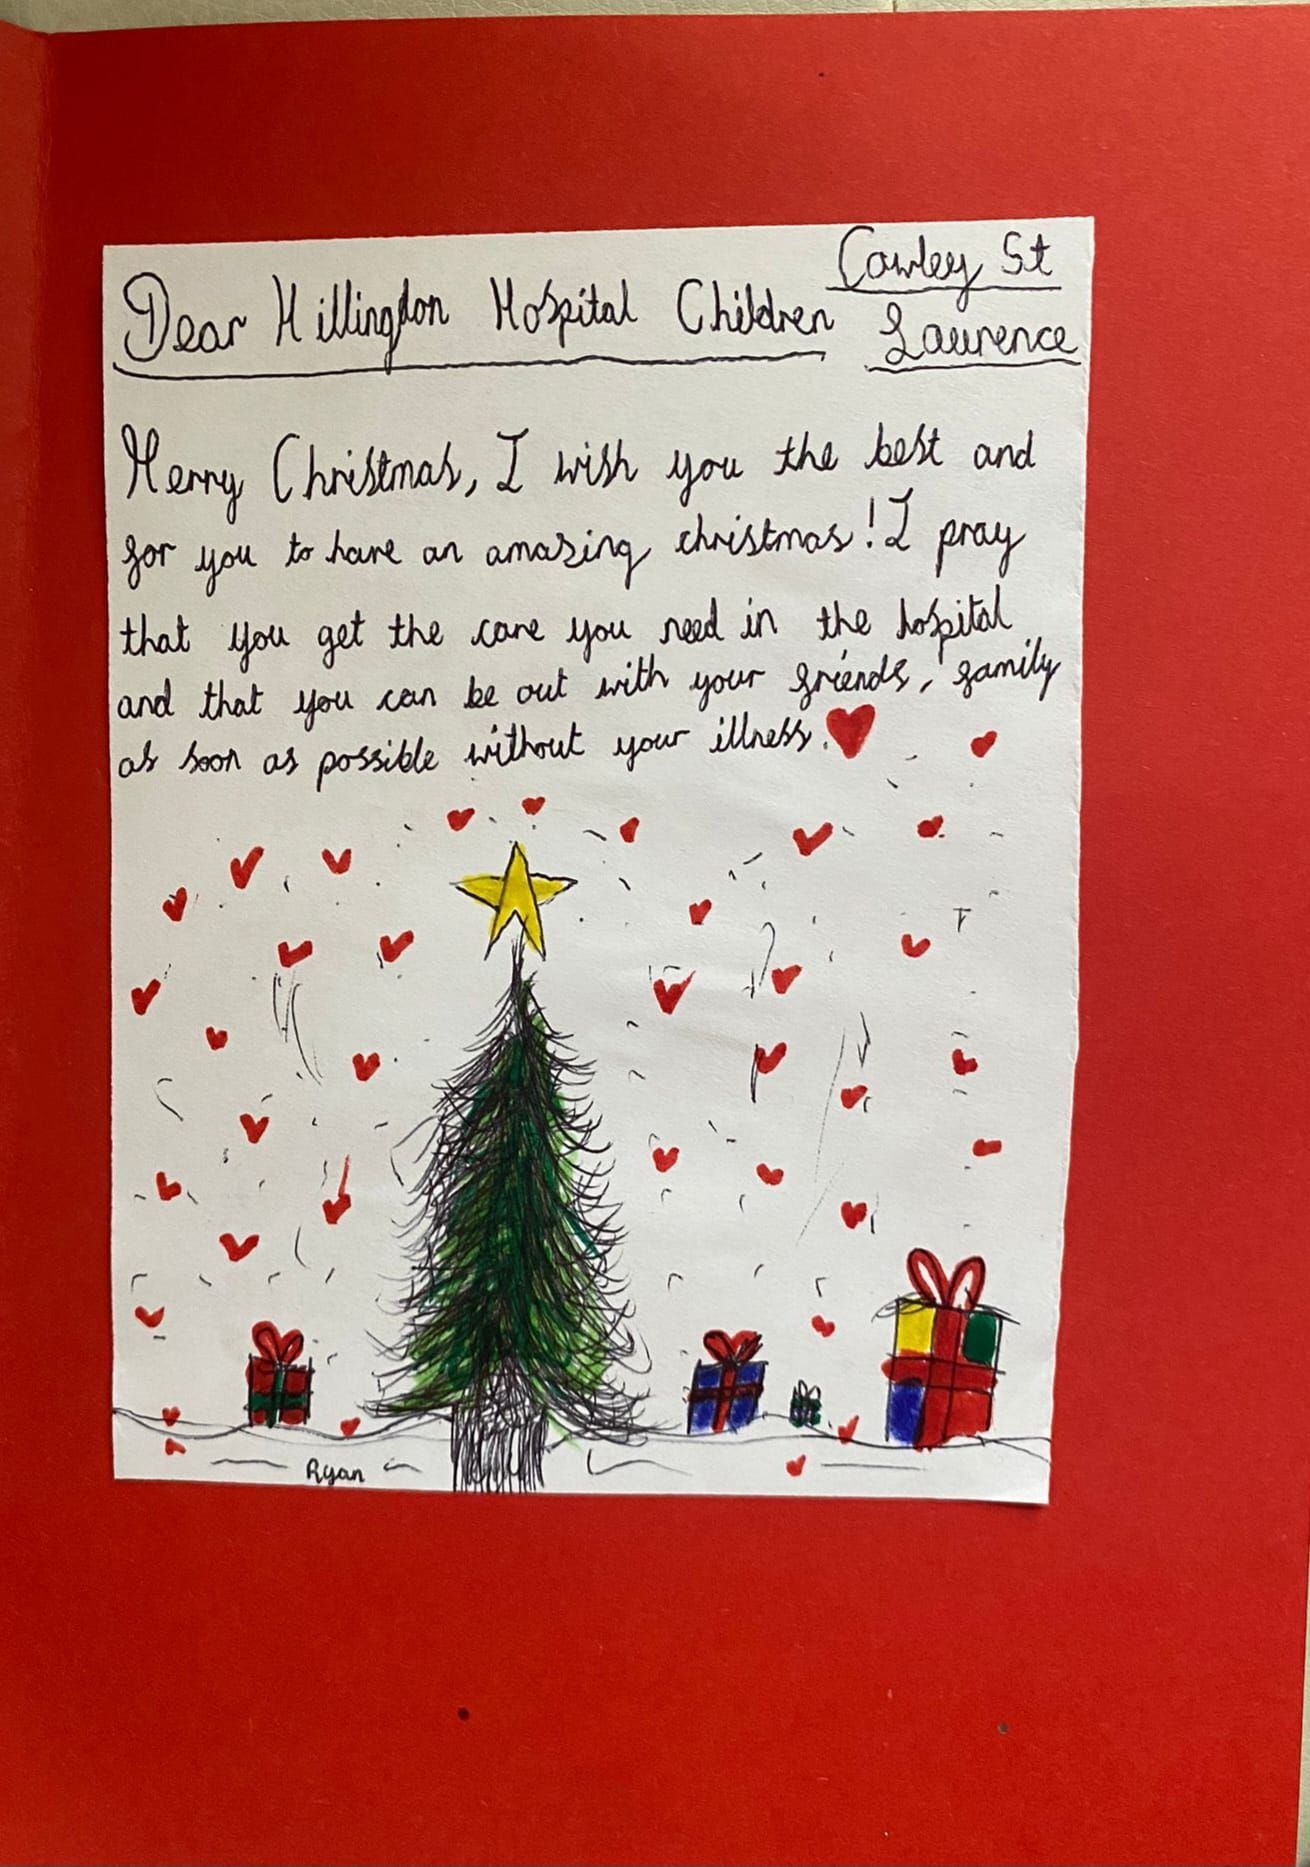 Cowley St
Laurence
Dear Hillingdon Hospital Children
Merry Christmas, I wish you the best and
for you to have an amazing christmas! I pray
that you get the care you need in the hospital
and that you can be out with your friends, family
as soon as possible without your illness.
Ryan